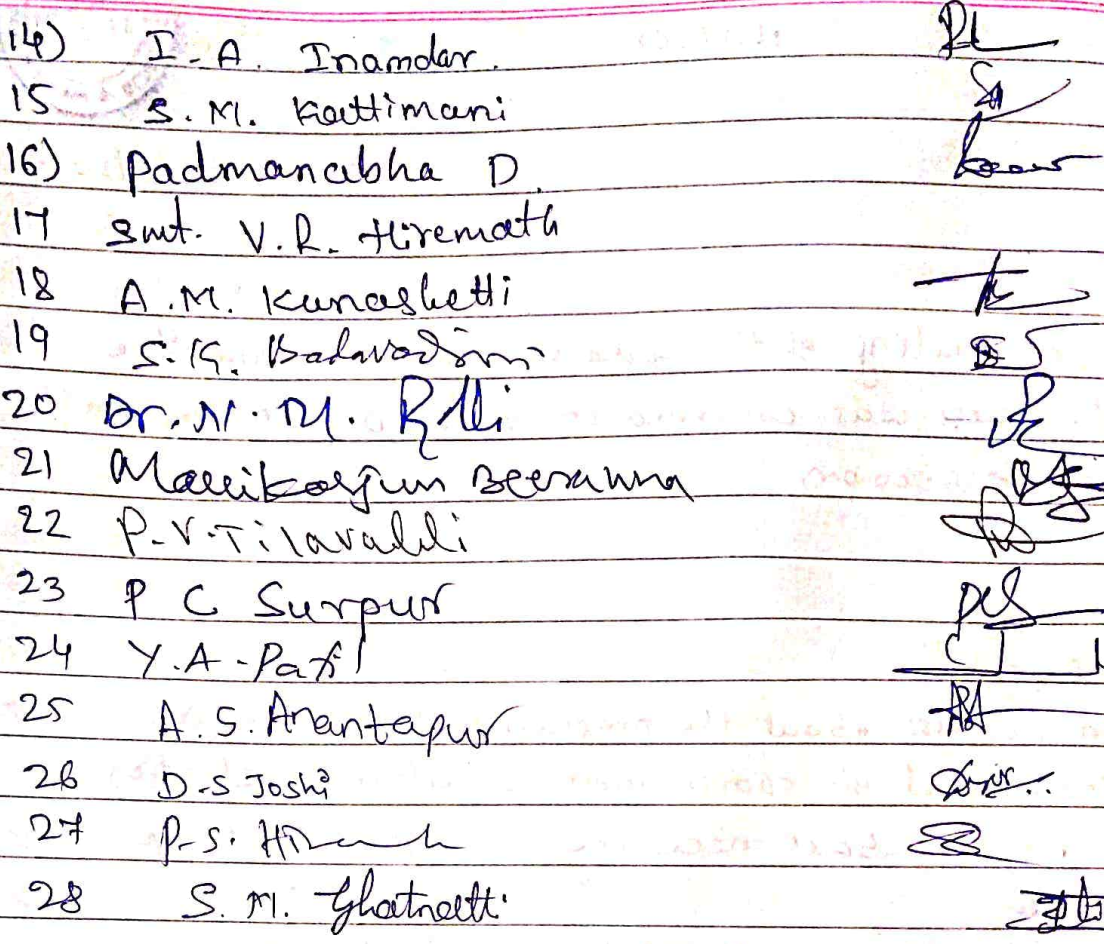 14) I.A. Inamdar.
15 S.M. Kattimani
16) Padmanabha D.
17 Smt. V.R. Hiremath
18 A.M. Kunashetti
19 S.G.
20 Dr. N.M.
21 Mallikarjun Beeranna
22 P.V.Tilavalli
23 P C Surpur
24 Y.A.Patil
25 A.S.Anantapur
26 D.S Joshi
27 P.S.
28 S.M. Ghatnatti